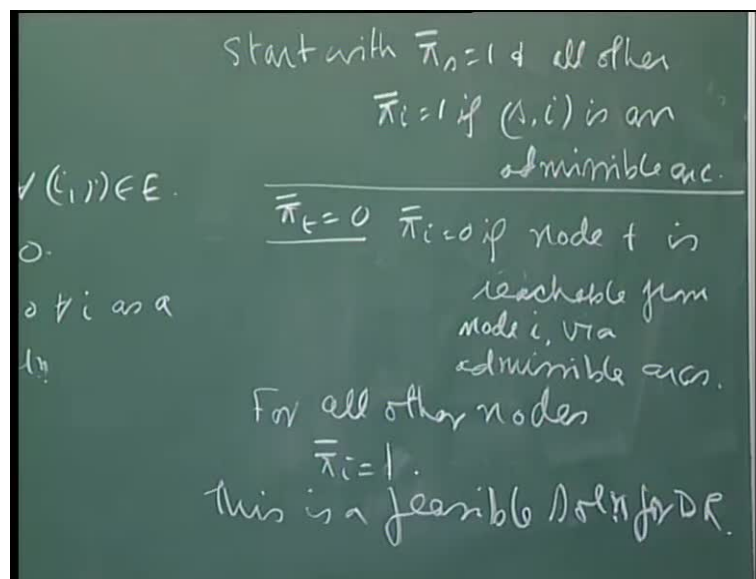 Start with π̄s=1 & all other
π̄i=1 if (s,i) is an
admissible arc.
∀ (i,j)∈E.
π̄t=0 π̄i=0 if node t is
0.
reachable from
0 ∀ i as a
node i, via
admissible arcs.
For all other nodes
π̄i=1.
This is a feasible Soln for DR.